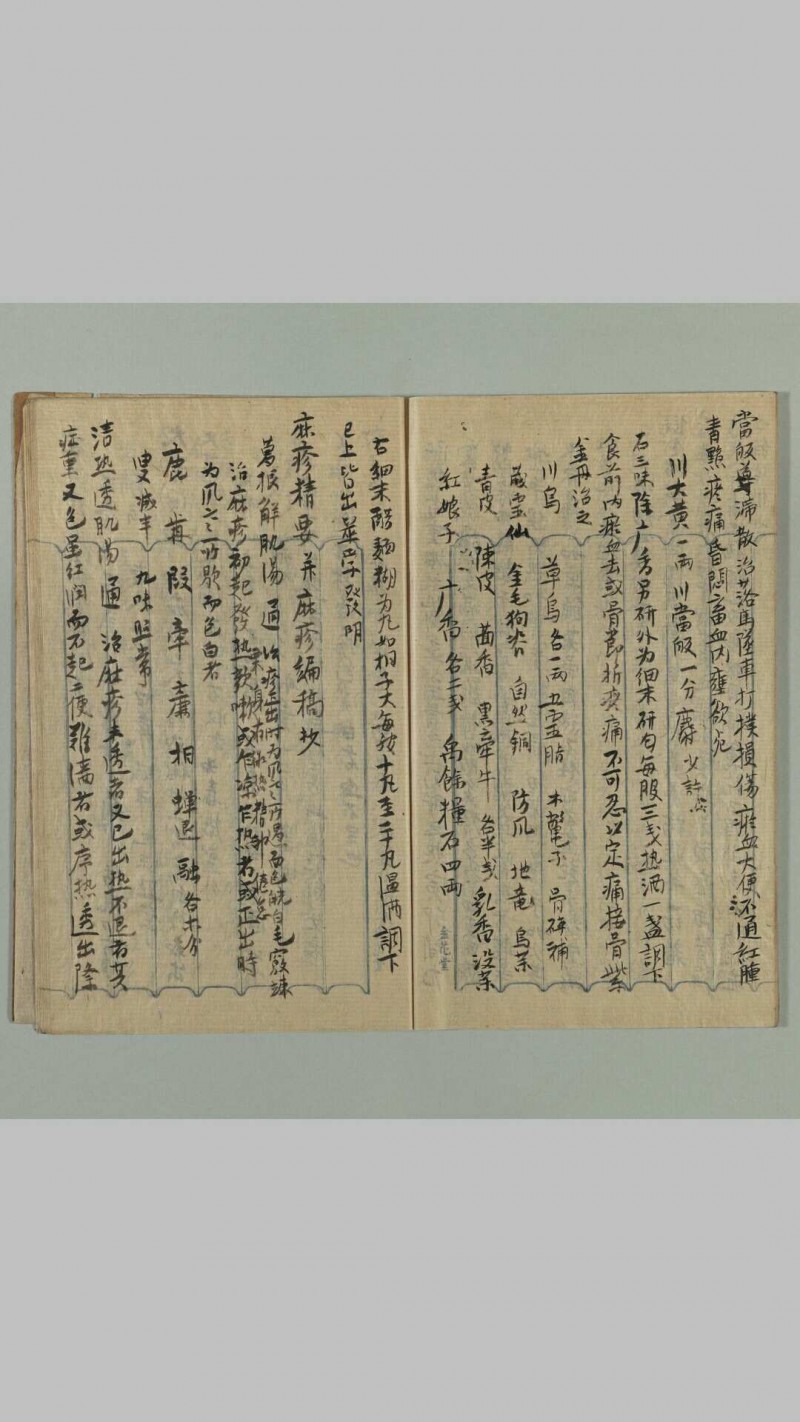 當皈導滞散治落馬墜車打撲損傷瘀血大便不通紅腫
青黯疼痛昏悶畜血内壅欲死
川大黄一兩川當皈一分麝少許
右三味除广香另研外为细末研匀每服三戋热酒一盏調下
食前内瘀血去或骨節折疼痛不可忍以定痛接骨紫
金丹治之
川烏 草烏各一兩五霊脂 木鱉子 骨碎補
威霊仙 金毛狗脊 自然铜 防风 地竜 烏茱
青皮 陳皮 茴香 黑牵牛各半戋乳香没茱
紅娘子 广香各二戋禹餘粮石四兩
右细末醋麺糊为丸如桐子大每我十丸至二十丸温酒調下
已上皆出並巴字發明
麻疹精要 并麻疹编稿抄
葛根解肌湯 通 治疹正出时为风之所袭而色皖白毛竅竦
治麻疹初起發热欬嗽或乍凉乍热者或正出時
为风之之所歇而色白者
鹿 葛 段 牽 亷 相 蟬退 融各卄分
叟减半 九味照常
洁热透肌湯 通 治麻疹未透者又已出热不退者其
症重又色呈红润而不起二便难濇者或序热透出除